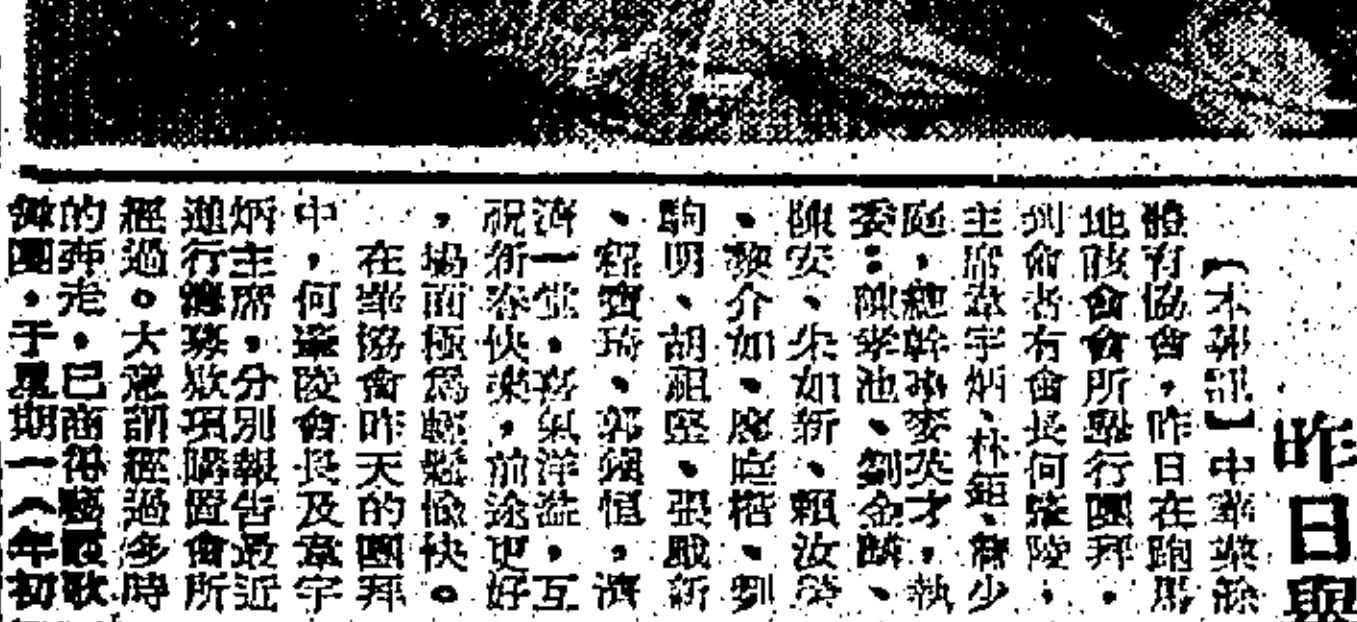 昨日與
【本報訊】中華業餘
體育協會，昨日在跑馬
地該會會所舉行團拜，
到會者有會長何陵，
主席韋宇炳、林鉅、少
庭，總幹事麥英才，執
委：陳孝池、劉金麟、
陳安、朱如新、賴汝
、黎介如、庭楷、劉
駒明、胡祖堅、張威新
、程寶琦、郭恒，濟
濟一堂，喜氣洋溢，互
祝新春快樂，前途更好
，場面極爲輕鬆愉快。
在華協會昨天的團拜
中，何陵會長及韋宇
炳主席，分別報告最近
進行籌募款項購置會所
經過。大意謂經過多時
的奔走，已商得歌
舞團，于星期一（年初